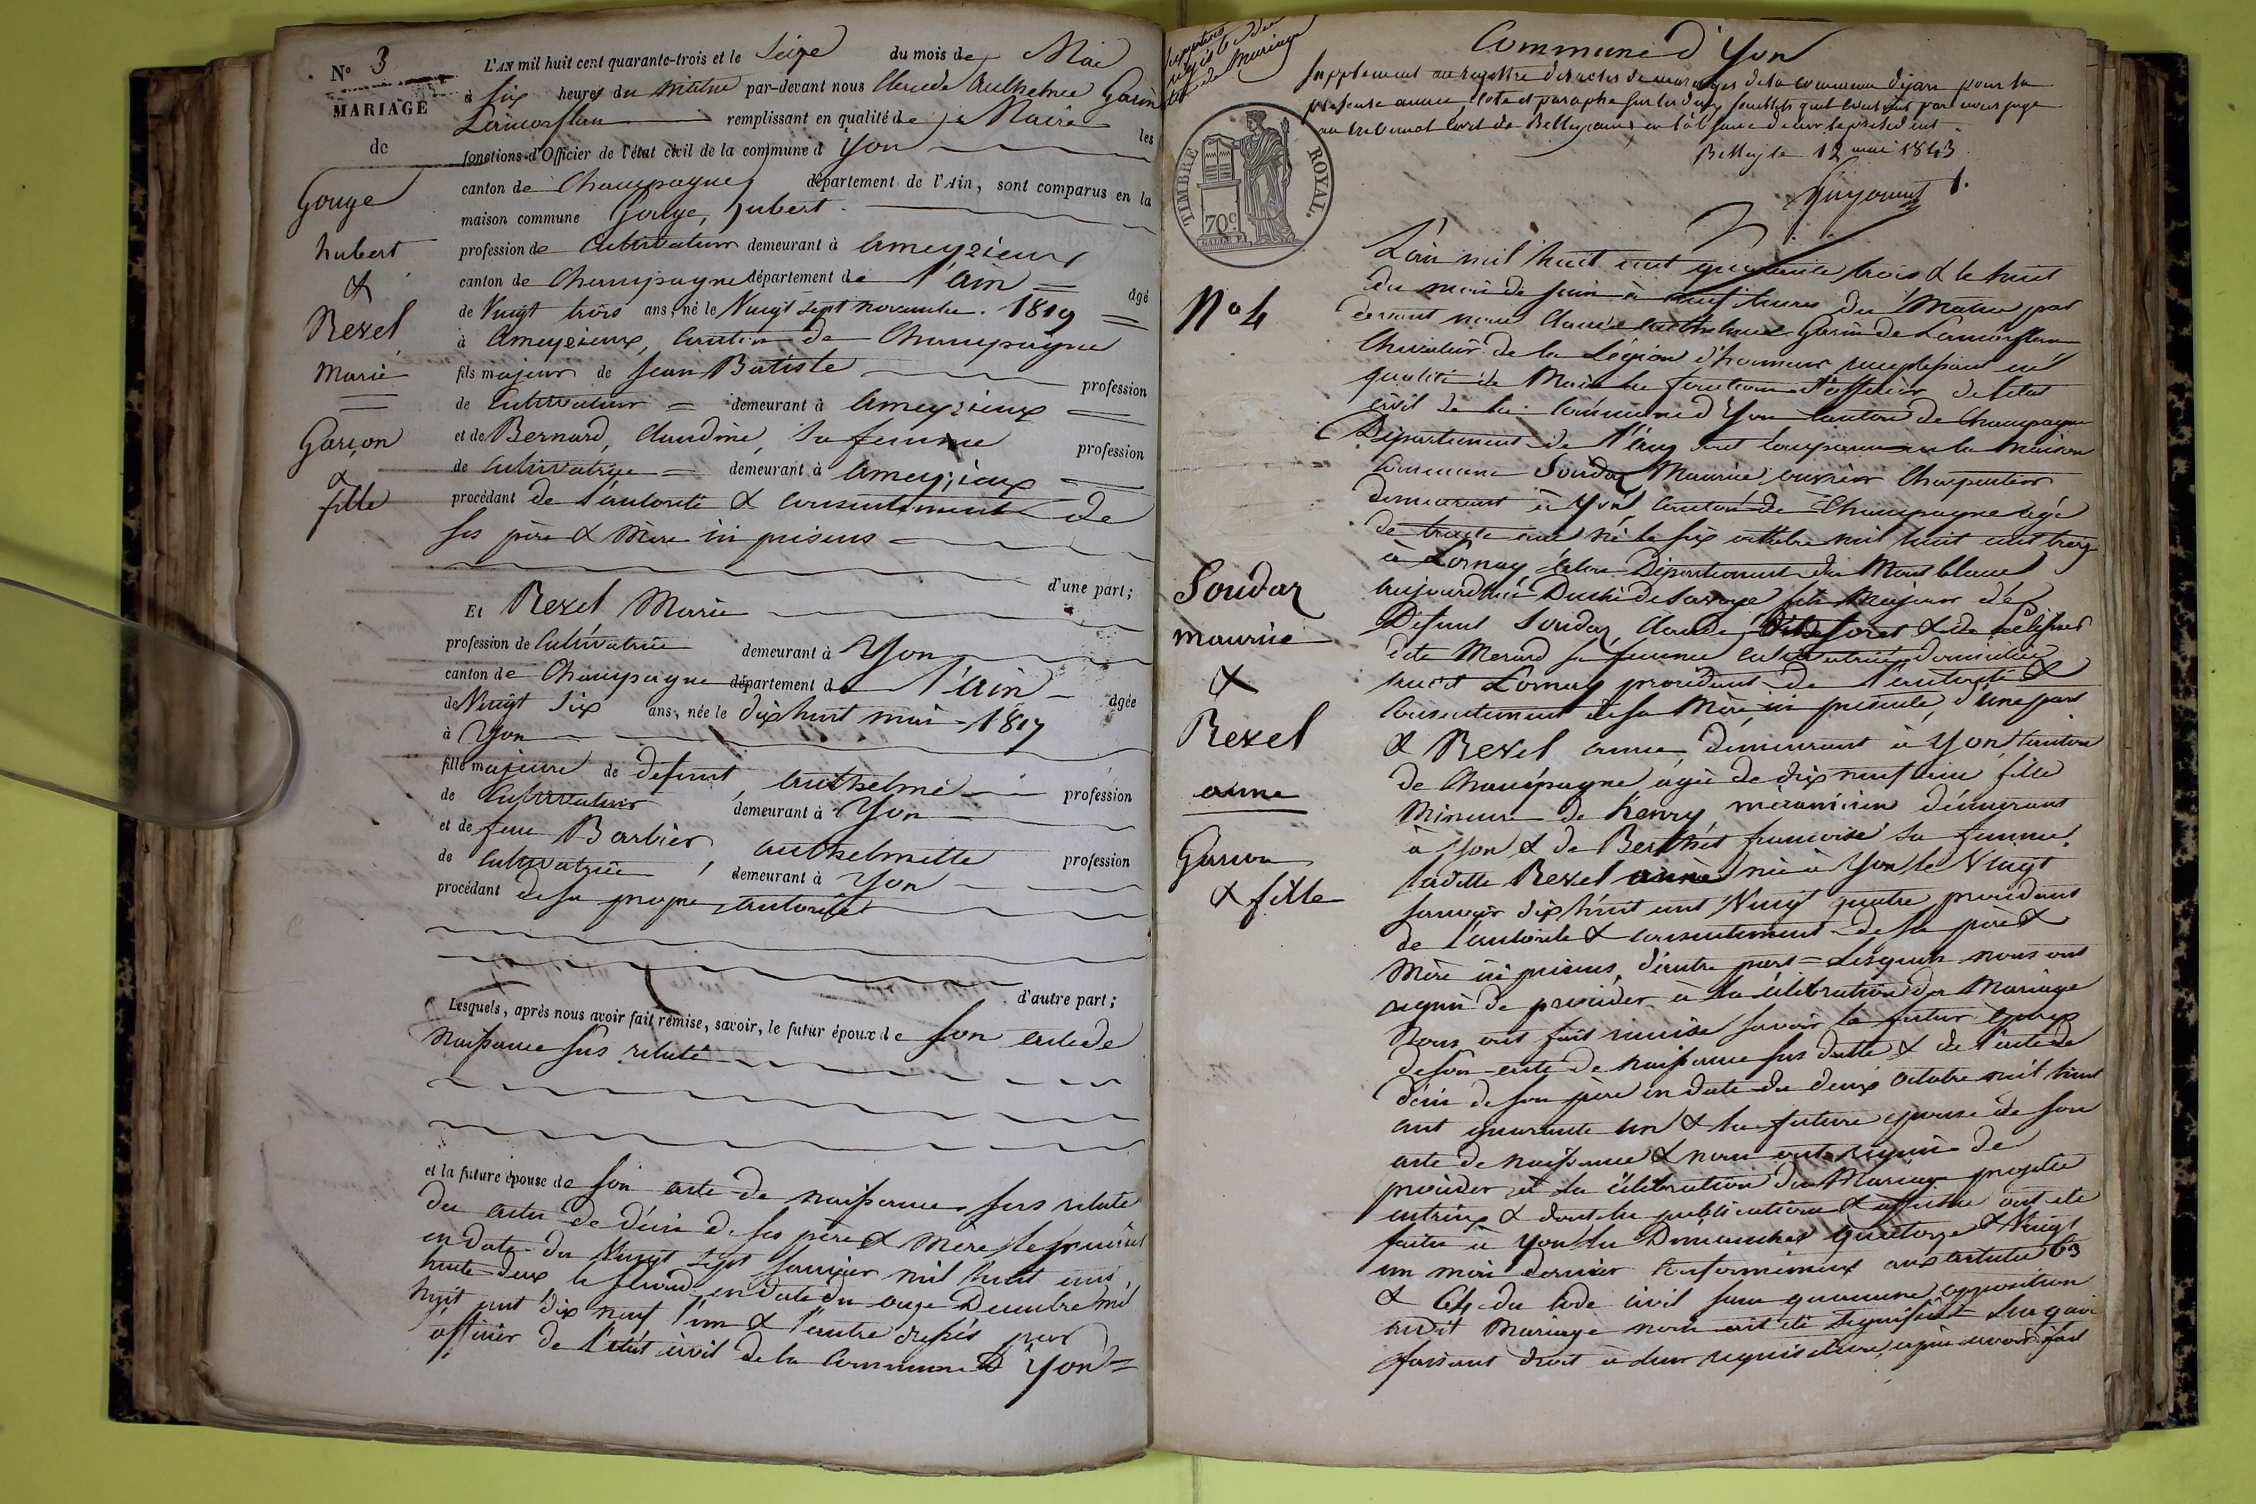 N° 3
MARIAGE
de
Gouge
hubert
&
Rexel
Marie
Garçon
&
fille
L'AN mil huit cent quarante-trois et le Seize du mois de Mai
à Six heures du Matin par-devant nous Claude Anthelme Garin
Lamorflan remplissant en qualité de Maire les
fonctions d'Officier de l'état civil de la commune d'Yon
canton de Champagne département de l'Ain, sont comparus en la
maison commune Gouge, hubert
profession de Cultivateur demeurant à Ameyzieux
canton de Champagne département de l'ain âgé
de Vingt trois ans, né le Vingt Sept novembre 1819
à Ameyzieux, Canton de Champagne
fils majeur de Jean Batiste profession
de Cultivateur demeurant à Ameyzieux
et de Bernard, Claudine, sa femme profession
de Cultivatrice demeurant à Ameyzieux
procédant de l'autorité & consentement de
ses père & Mère ici présens
d'une part;
Et Rexel Marie
profession de Cultivatrice demeurant à Yon
canton de Champagne département de l'ain âgée
de Vingt Six ans, née le dix huit mai 1817
à Yon
fille majeure de défunt, anthelme profession
de Cultivateur demeurant à Yon
et de feue Barbier, anthelmette profession
de Cultivatrice demeurant à Yon
procédant de sa propre autorité
d'autre part;
Lesquels, après nous avoir fait remise, savoir, le futur époux de son acte de
naissance sus relaté
et la future épouse de son acte de naissance sus relaté
des actes de décès de ses père & mère le premier
en date du Vingt Sept Janvier mil huit cent
trente deux le second en date du onze Decembre mil
huit cent dix neuf l'un & l'autre dressés par
officier de l'état civil de la commune d'Yon
Commune d'Yon
Supplement au registre des actes de mariages de la commune d'yon pour la
presente année Coté et paraphé sur les deux feuillets par nous juge
au tribunal civil de Belley en l'absence de le president
Belley le 12 mai 1843
TIMBRE ROYAL.
70c
N° 4
Soudaz
maurice
&
Rexel
anne
Garçon
& fille
L'an mil huit cent quarante trois & le huit
du mois de Juin à neuf heures du Matin par
devant nous Claude anthelme Garin de Lamorflan
Chevalier de la Légion d'honneur remplissant en
qualité de Maire les fonctions d'officier de l'état
civil de la commune d'Yon canton de Champagne
Département de l'ain sont comparus en la maison
commune Soudaz Maurice, ouvrier Charpentier
demeurant à Yon Canton de Champagne âgé
de trente ans né le six octobre mil huit cent treize
à Lornay alors Département du Mont blanc
aujourd'hui Duché de Savoye fils Majeur de
Défunt Soudaz, Claude, & de
dite Merard sa femme cultivatrice domiciliée
audit Lornay procédant de l'autorité &
consentement de sa Mère ici présente, d'une part
& Rexel anne, demeurant à Yon, canton
de Champagne âgée de dix neuf ans fille
Mineure de henry, mécanicien demeurant
à Yon & de Berthet francoise sa femme.
ladite Rexel anne née à Yon le Vingt
Janvier dix huit cent Vingt quatre procédant
de l'autorité & consentement de sa père &
Mère ici présens, d'autre part = Lesquels nous ont
requis de procéder à la célébration du Mariage
Nous ont fait remise savoir le futur époux
de son acte de naissance sus daté & de l'acte de
décès de son père en date du deux octobre mil huit
cent quarante un & la future épouse de son
acte de naissance & nous ont requis de
procéder à la célébration du Mariage projeté
entr'eux & dont les publications & affiches ont été
faites à Yon les Dimanches quatorze & Vingt
un mai dernier conformément aux articles 63
& 64 du Code civil sans qu'aucune opposition
audit Mariage nous ait été signifiée
faisant droit à leur requisition, après avoir fait